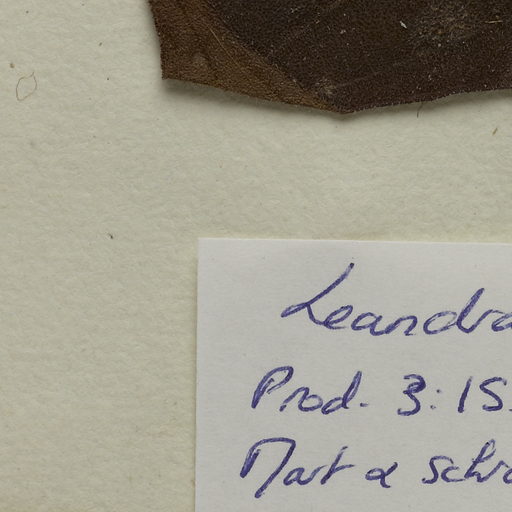 Leandra
Prod. 3:15
Mart & Schr